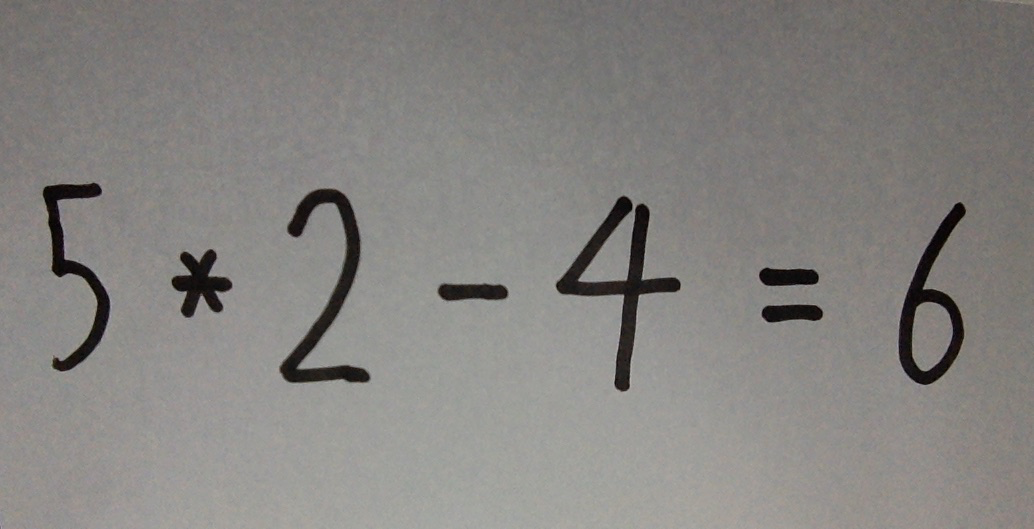 5 * 2 - 4 = 6